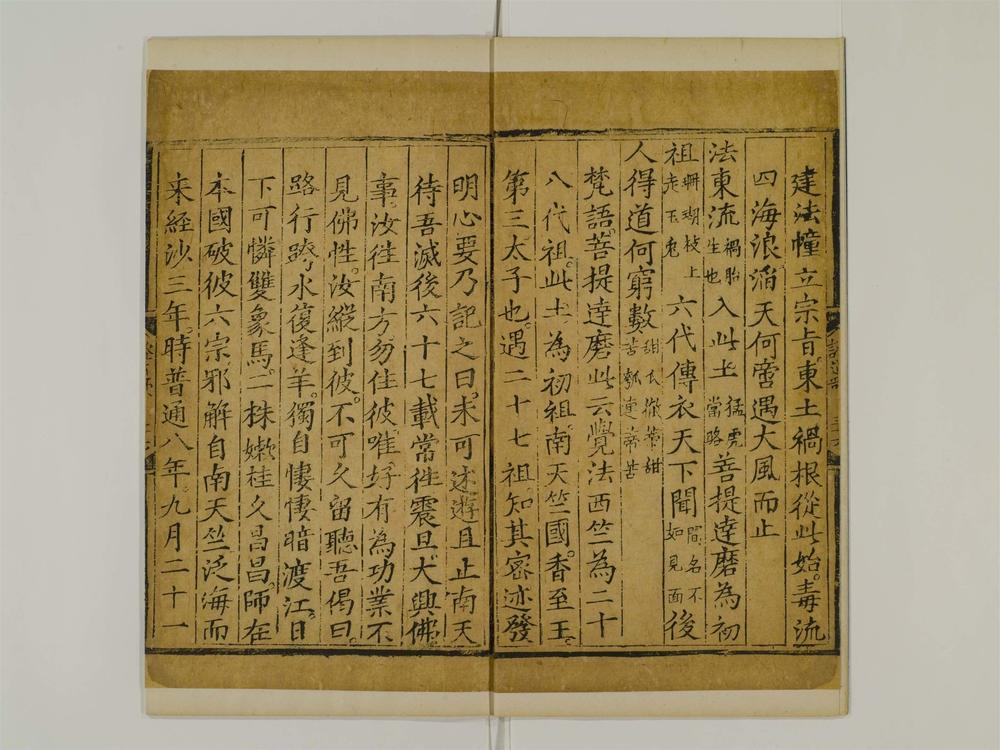 建法幢立宗旨。東土禍根從此始。毒流
四海浪滔天何啻遇大風而止
法東流禍胎生也入此土猛虎當路菩提達磨為初
祖珊瑚枝上走玉兔六代傳衣天下聞聞名不如見面後
人得道何窮數甜瓜徹蒂甜苦瓠連蒂苦
梵語。菩提達磨此云覺法西竺為二十
八代祖。此土為初祖。南天竺國。香至王。
第三太子也。遇二十七祖知其密迹發
明心要乃記之曰。未可述遊且止南天
待吾滅後六十七載當往震旦。大興佛
事。汝往南方。勿住彼。唯好有為功業不
見佛性。汝縱到彼。不可久留聽吾偈曰。
路行跨水復逢羊。獨自悽悽暗渡江。日
下可憐雙象馬。二株嫩桂久昌昌。師在
本國破彼六宗。邪解自南天竺泛海而
来經沙三年。時普通八年。九月二十一